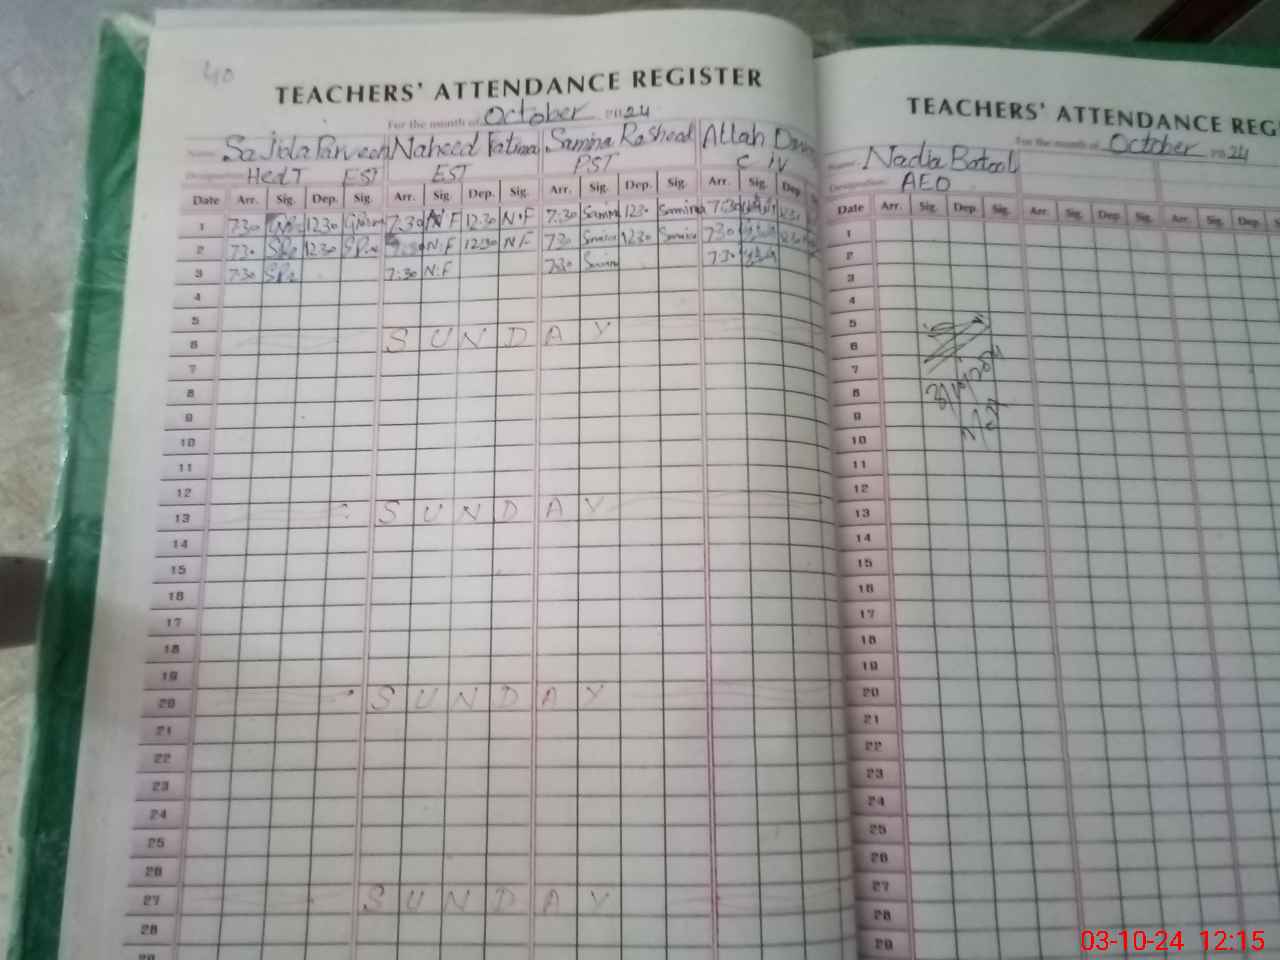 40
TEACHERS' ATTENDANCE REGISTER
For the month of October 2024
Name Sajida Parveen Naheed Fatima Samina Rasheed Allah
Head T EST EST PST C IV
Date Arr. Sig. Dep. Sig. Arr. Sig. Dep. Sig. Arr. Sig. Dep. Sig. Arr. Sig. Dep
1 7:30 12:30 7:30 N F 12:30 N.F 7:30 Samina 12:30 Samina 7:30 12:30
2 7:30 12:30 7:30 N.F 12:30 N F 7:30 Samina 12:30 Samina 7:30 12:30
3 7:30 7:30 N.F 7:30 Samina 7:30
4
5
6 SUNDAY
7
8
9
10
11
12
13 SUNDAY
14
15
16
17
18
19
20 SUNDAY
21
22
23
24
25
26
27 SUNDAY
28
29
TEACHERS' ATTENDANCE REG
For the month of October 2024
Name Nadia Batool
Designation AEO
Date Arr. Sig. Dep. Sig. Arr. Sig. Dep. Sig. Arr. Sig. Dep.
1
2
3
4
5
6
7
8
9
10
11
12
13
14
15
16
17
18
19
20
21
22
23
24
25
26
27
28
29
03-10-24 12:15